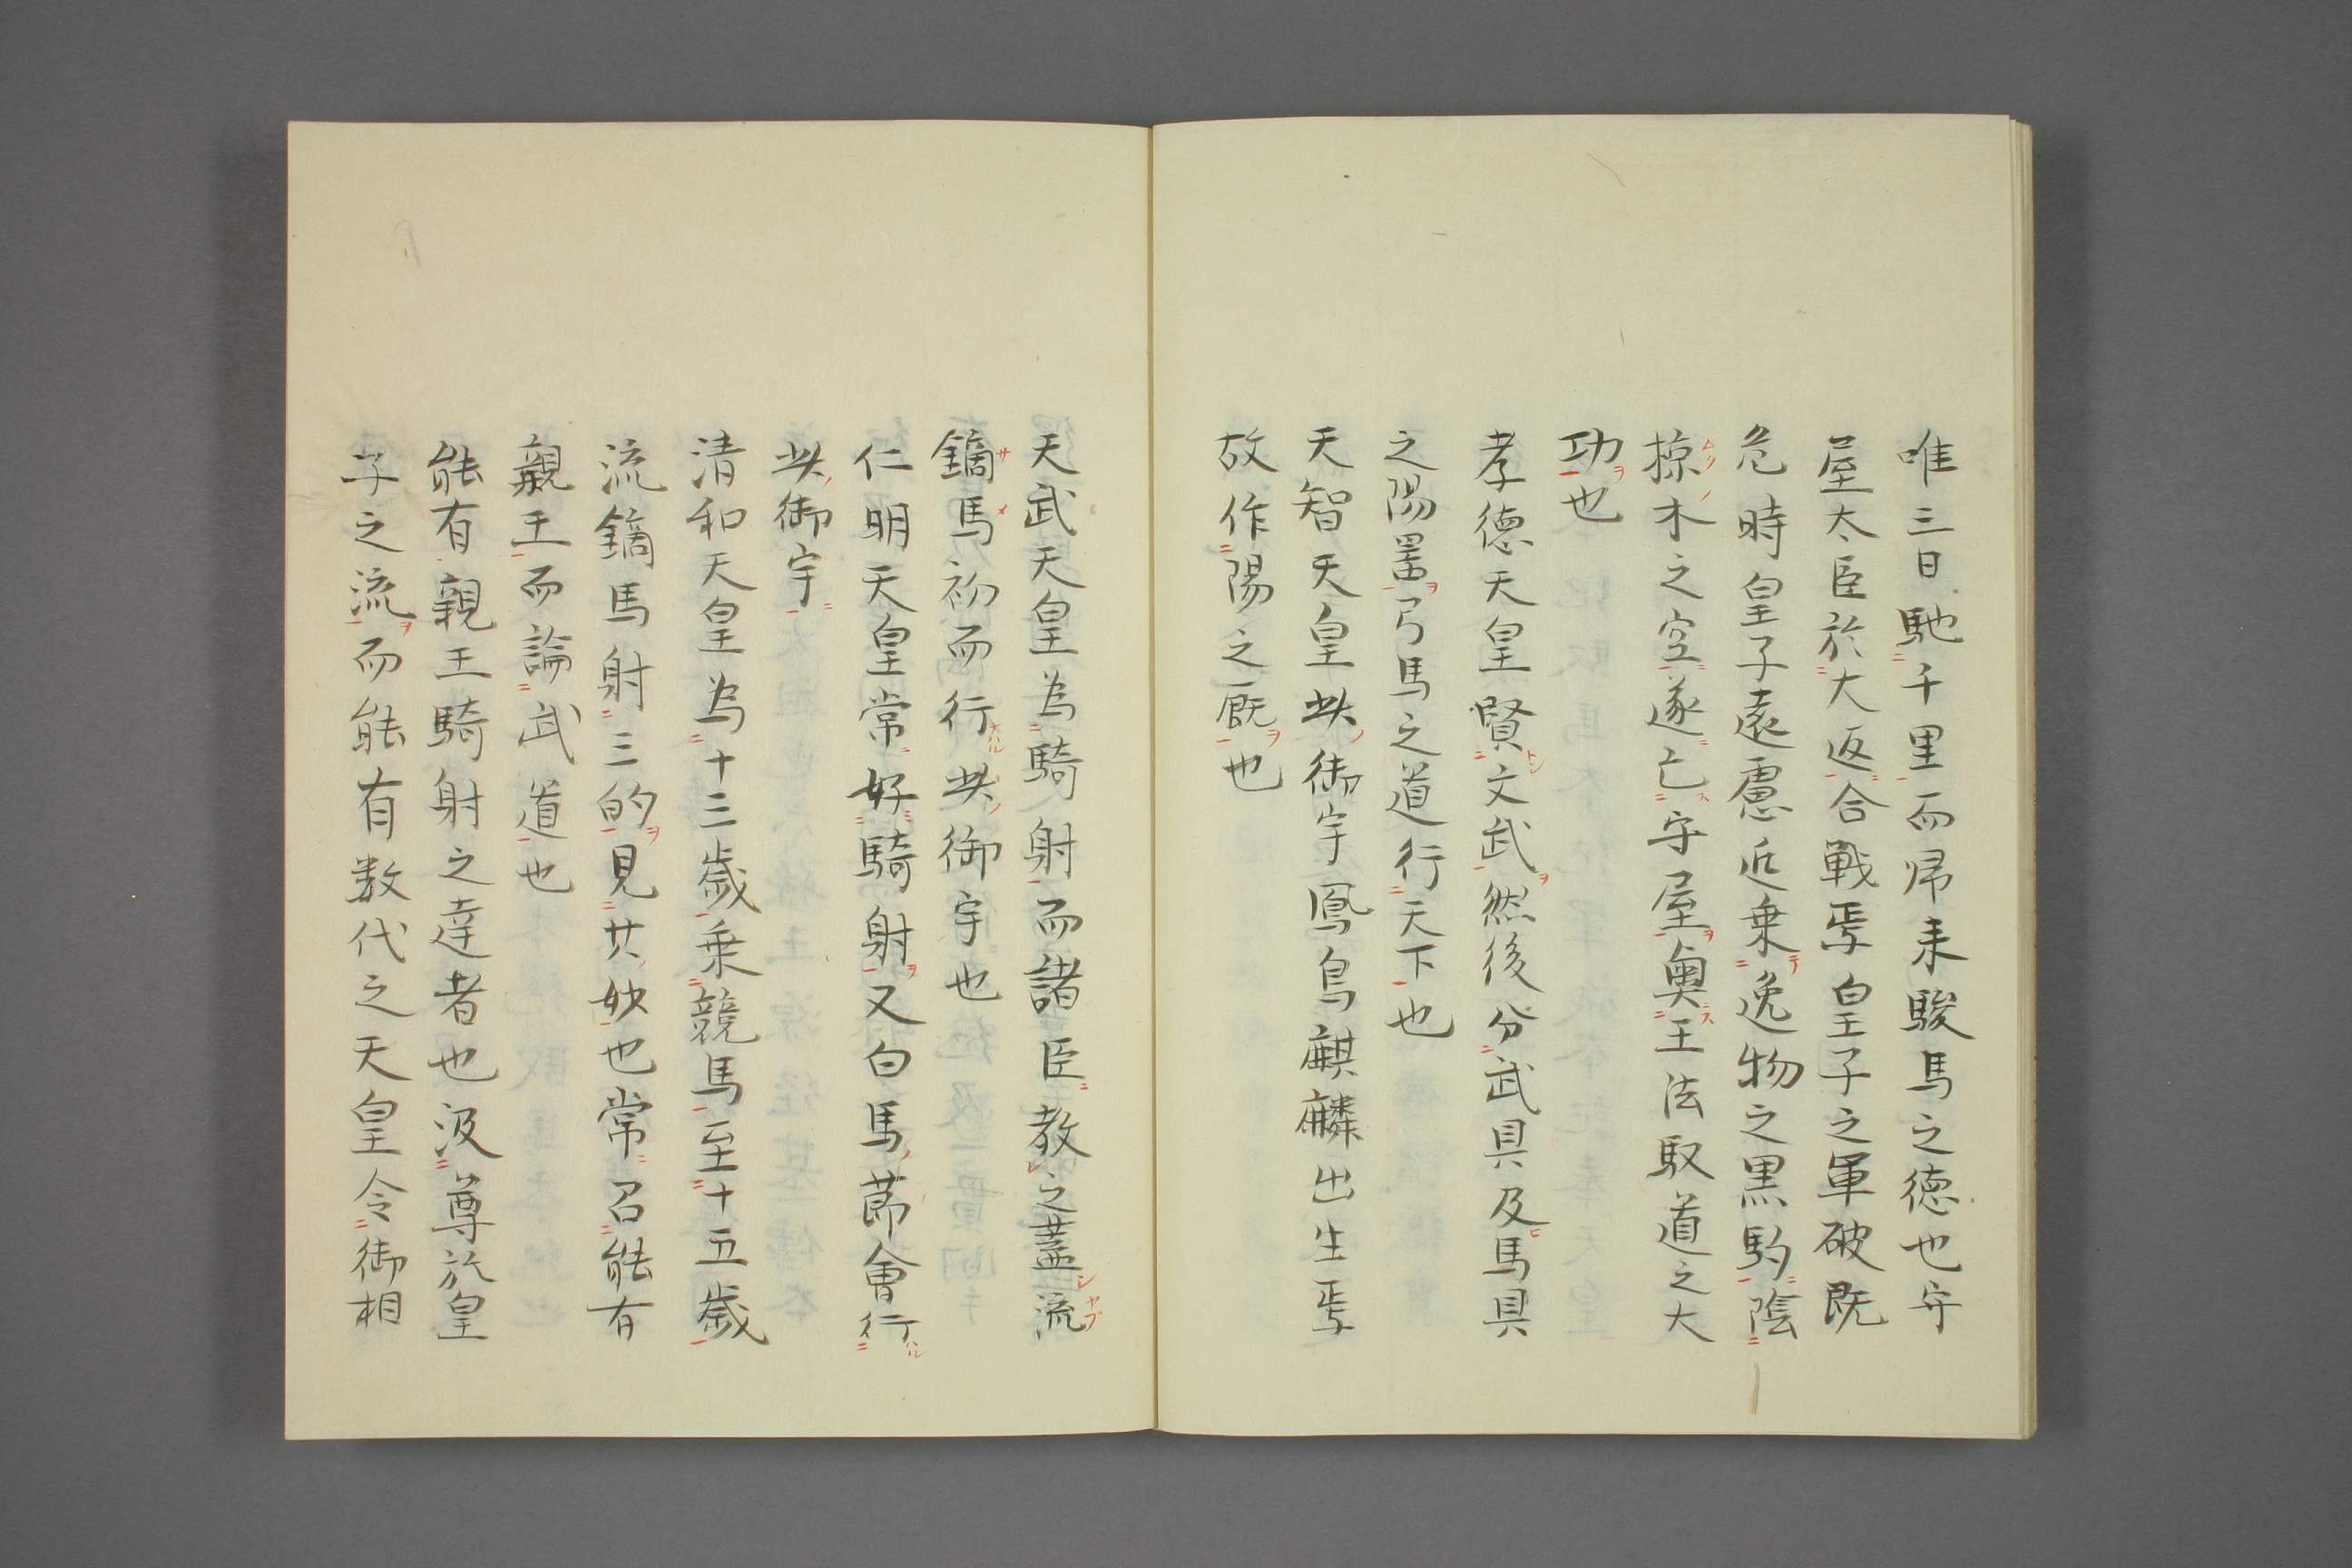 唯三日馳千里而帰来駿馬之德也守
屋大臣於大返合戰焉皇子之軍破既
危時皇子遠慮近乗逸物之黒駒陰
椋木之空遂亡守屋奥王法馭道之大
功也
孝德天皇賢文武然後分武具及馬具
之陽畧弓馬之道行天下也
天智天皇此御宇鳳鳥麒麟出生焉
故作陽之厩也
天武天皇為騎射而諸臣教之蓋流
鏑馬初而行此御宇也
仁明天皇常好騎射又白馬節會行
此御宇
清和天皇為十三歳乗競馬至十五歳
流鏑馬射三的見其妙也常召能有
親王而論武道也
能有親王騎射之達者也汲尊於皇
子之流而能有数代之天皇令御相